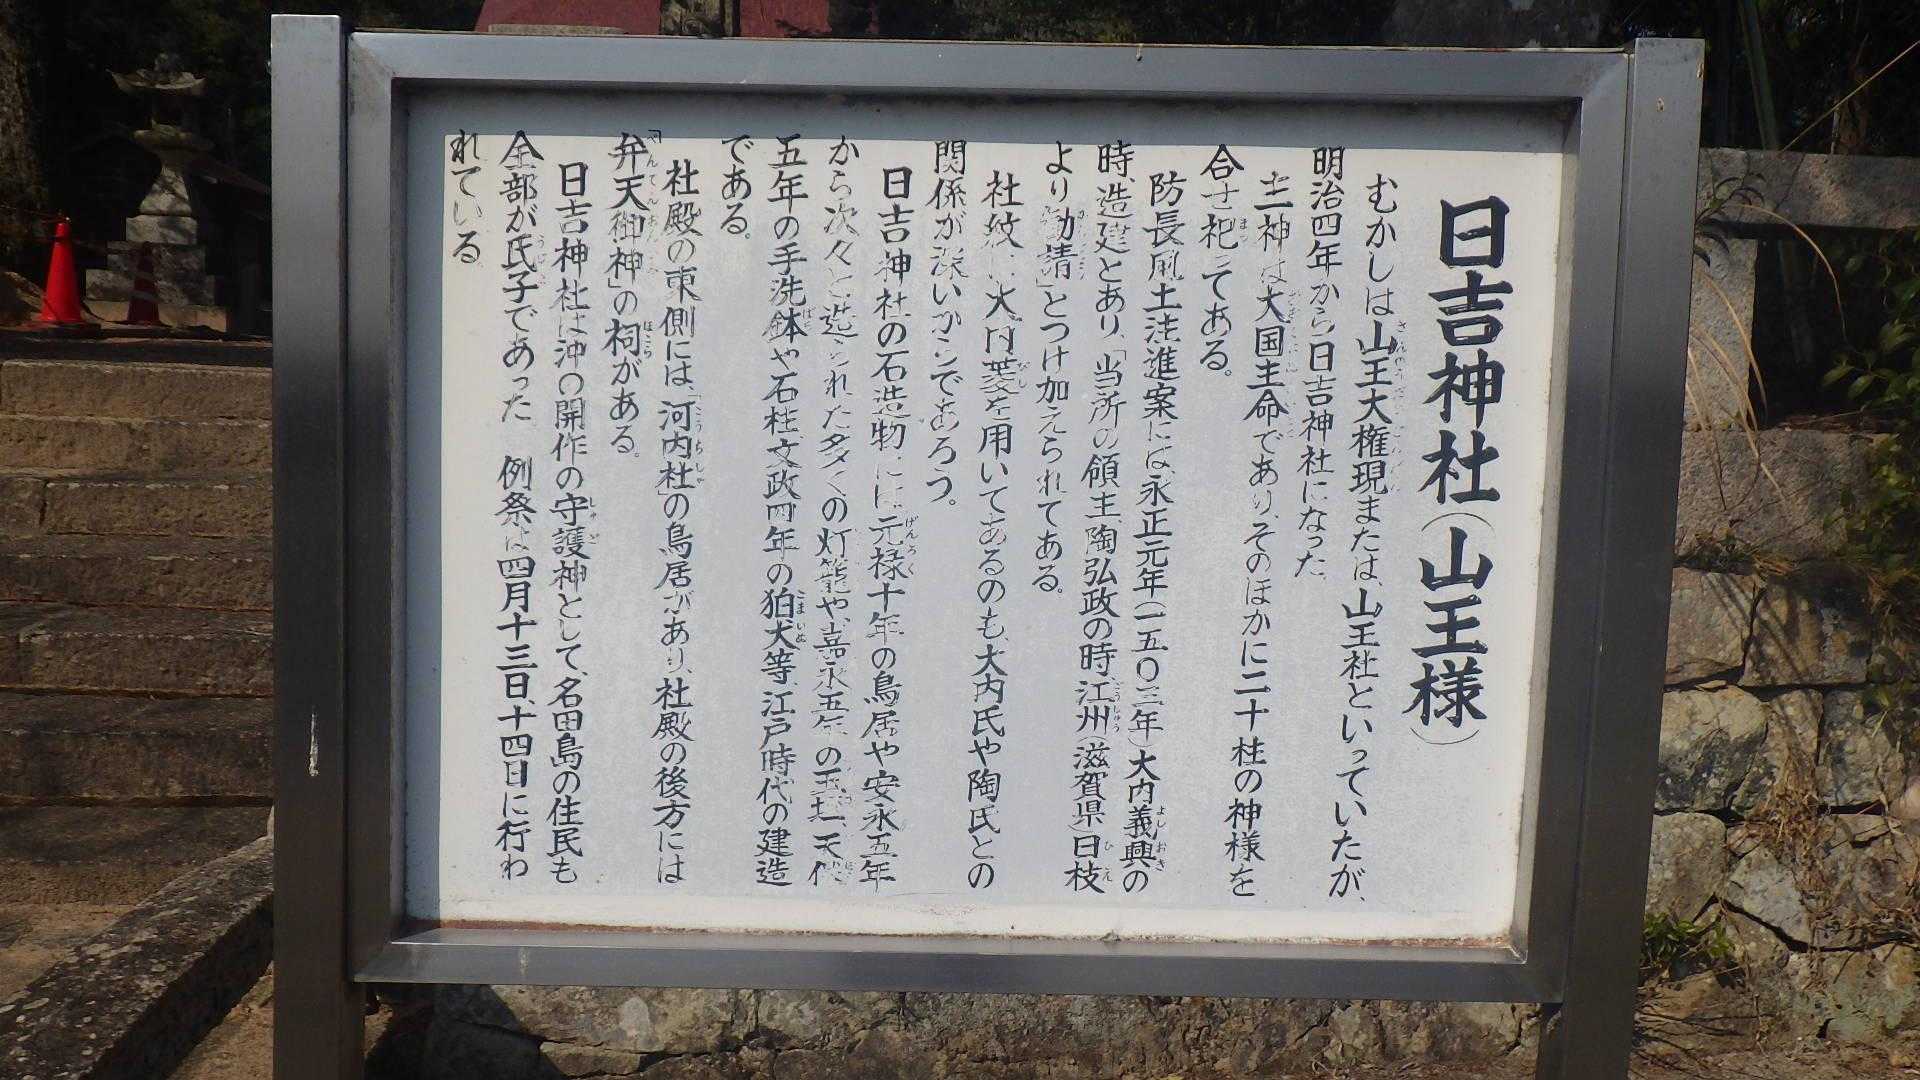 日吉神社(山王様)
むかしは山王大権現または、山王社といっていたが、
明治四年から日吉神社になった。
主神は大国主命であり、そのほかに二十柱の神様を
合せ祀ってある。
防長風土注進案には、永正元年(一五〇三年)大内義興の
時、造建とあり、「当所の領主、陶弘政の時、江州(滋賀県)日枝
より勧請」とつけ加えられてある。
社紋に大内菱を用いてあるのも、大内氏や陶氏との
関係が深いからであろう。
日吉神社の石造物には元禄十年の鳥居や安永五年
から次々と造られた多くの灯籠や、嘉永五年の玉垣、天保
五年の手洗鉢や石柱、文政四年の狛犬等江戸時代の建造
である。
社殿の東側には、「河内社」の鳥居があり、社殿の後方には
「弁天御神」の祠がある。
日吉神社は沖の開作の守護神として、名田島の住民も
全部が氏子であった 例祭は四月十三日、十四日に行わ
れている。